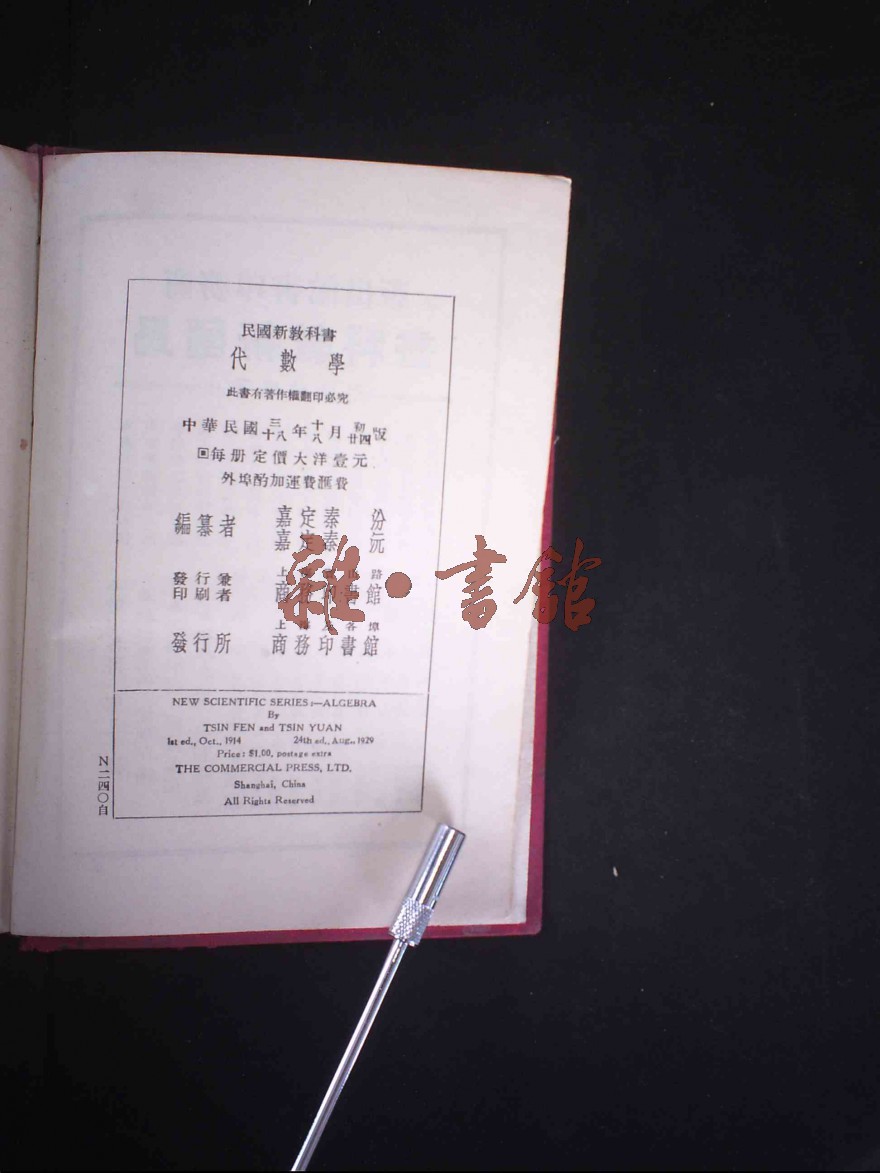 民國新教科書
代數學
此書有著作權翻印必究
中華民國三年十月初版
十八年八月廿四版
回每册定價大洋壹元
外埠酌加運費滙費
編纂者 嘉定秦汾
嘉定秦沅
發行兼印刷者 上 路
商務印書館
發行所 上海及各埠
商務印書館
NEW SCIENTIFIC SERIES:—ALGEBRA
By
TSIN FEN and TSIN YUAN
1st ed., Oct., 1914 24th ed., Aug., 1929
Price: $1.00, postage extra
THE COMMERCIAL PRESS, LTD.
Shanghai, China
All Rights Reserved
N二四〇自
雜·書館